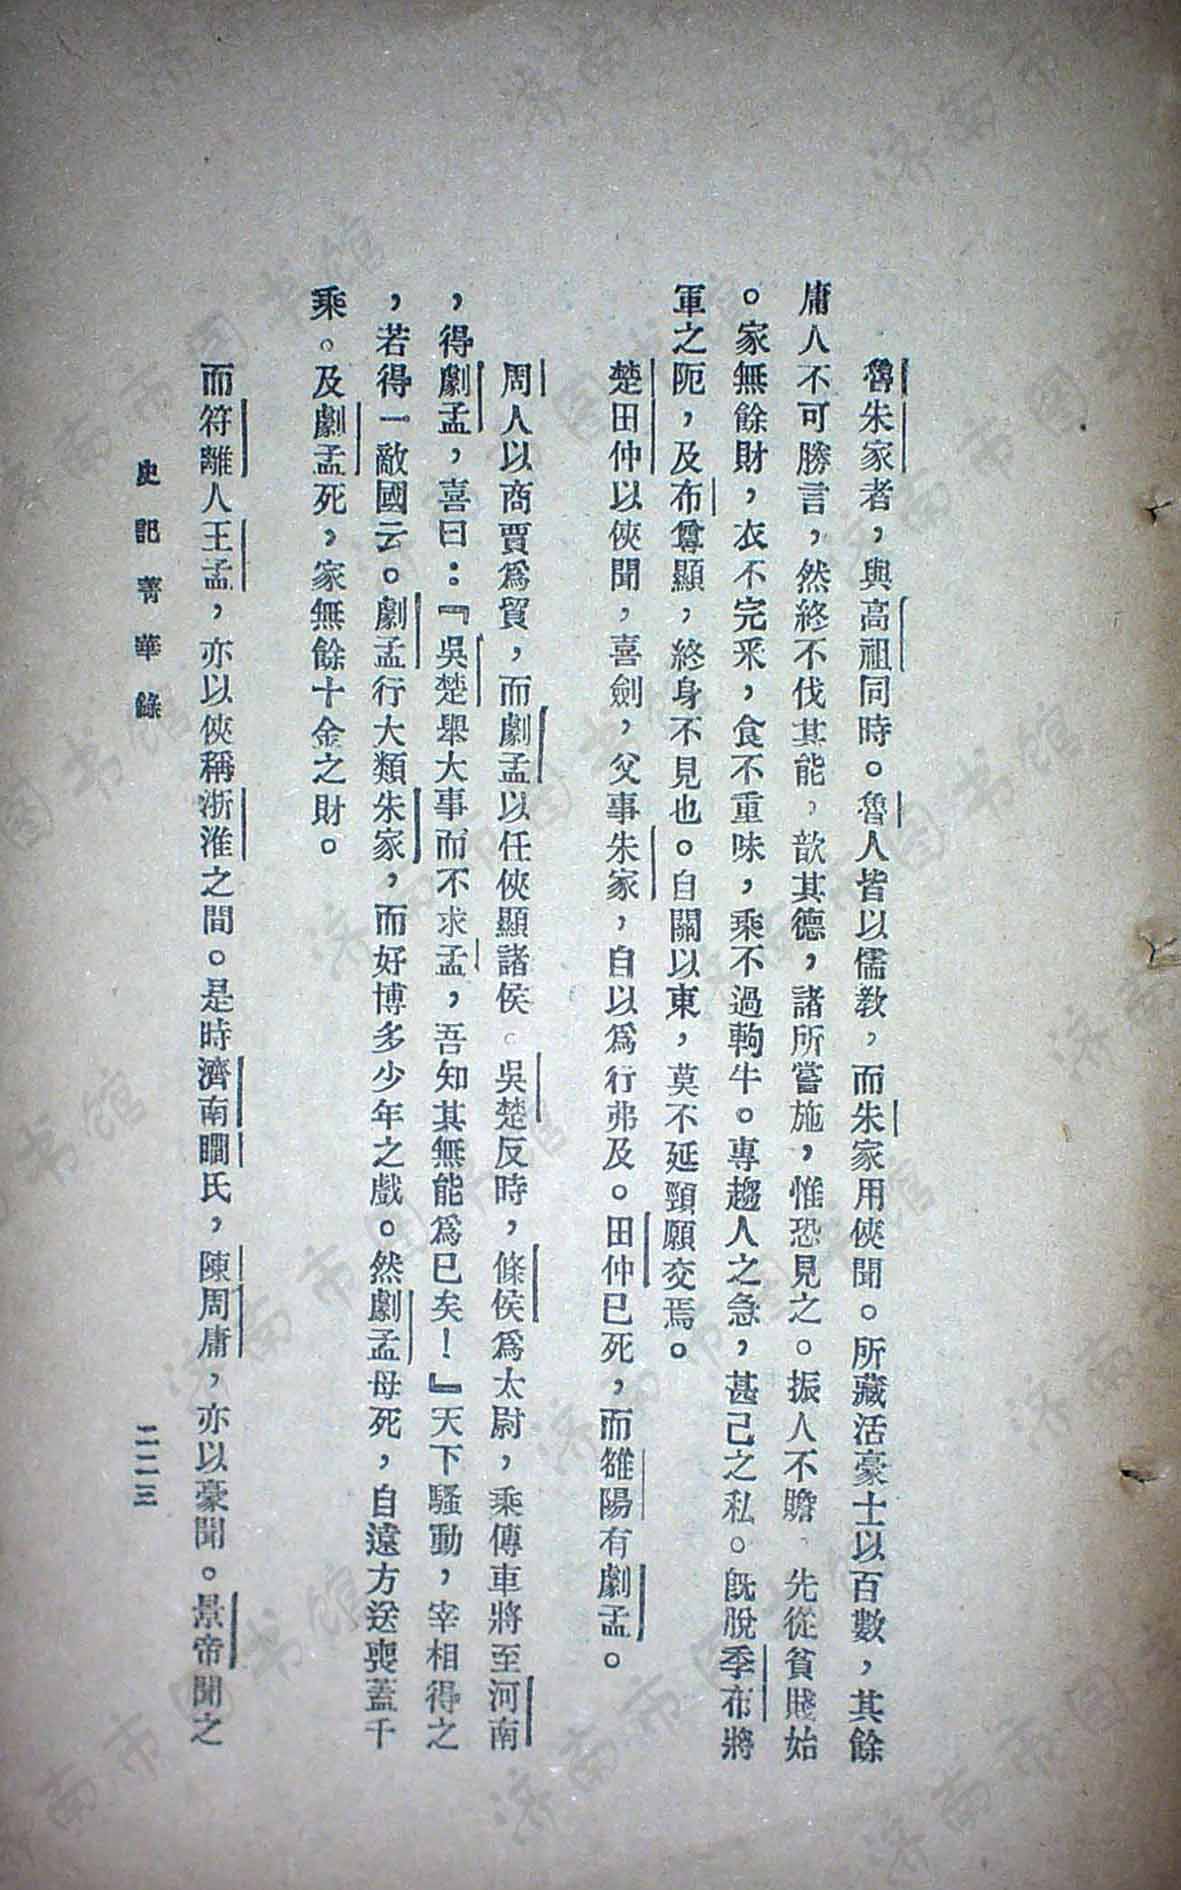 魯朱家者，與高祖同時。魯人皆以儒教，而朱家用俠聞。所藏活豪士以百數，其餘
庸人不可勝言，然終不伐其能，歆其德，諸所嘗施，惟恐見之。振人不贍，先從貧賤始
。家無餘財，衣不完釆，食不重味，乘不過軥牛。專趨人之急，甚己之私。既脫季布將
軍之阨，及布尊顯，終身不見也。自關以東，莫不延頸願交焉。
楚田仲以俠聞，喜劍，父事朱家，自以爲行弗及。田仲已死，而雒陽有劇孟。
周人以商賈爲貿，而劇孟以任俠顯諸侯。吳楚反時，條侯爲太尉，乘傳車將至河南
，得劇孟，喜曰：『吳楚舉大事而不求孟，吾知其無能爲已矣！』天下騷動，宰相得之
，若得一敵國云。劇孟行大類朱家，而好博多少年之戲。然劇孟母死，自遠方送喪蓋千
乘。及劇孟死，家無餘十金之財。
而符離人王孟，亦以俠稱浙淮之間。是時濟南瞷氏，陳周庸，亦以豪聞。景帝聞之
史記菁華錄
二二三
济南市图书馆